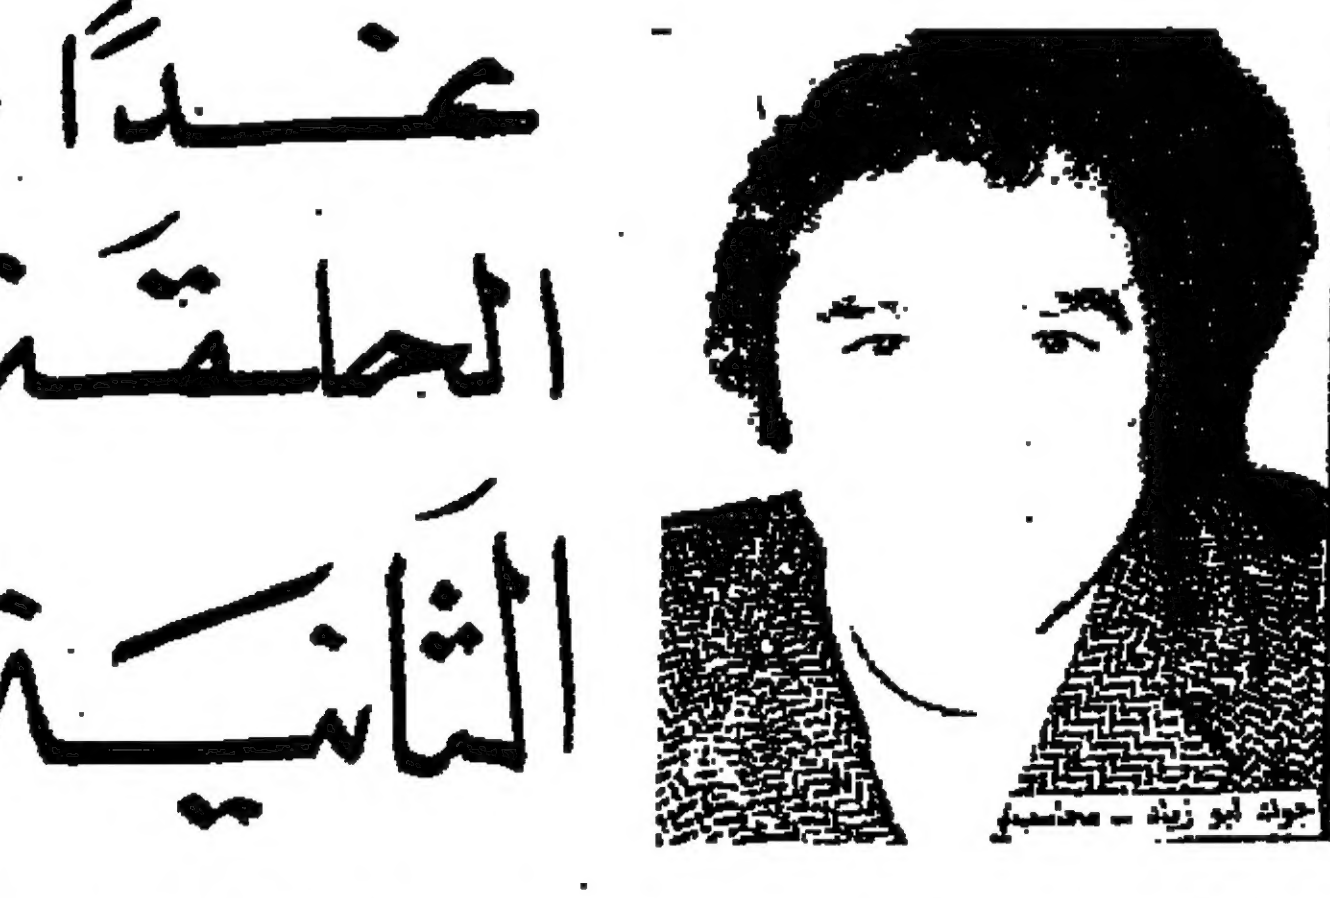 غدًا
الحلقَة
الثَانيَة
جودة أبو زيد – محاسب